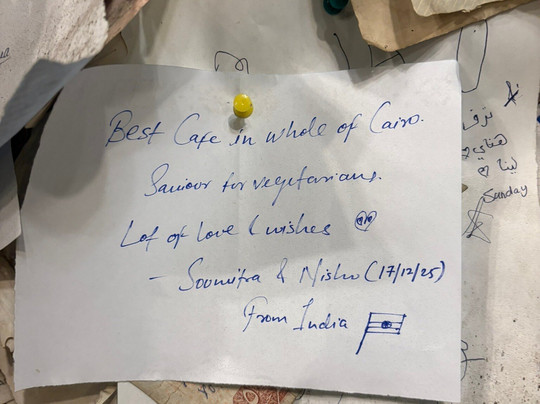 Best Cafe in whole of Cairo.
Saviour for vegetarians.
Lot of love & wishes
- Soumitra & Nishu (17/12/25)
From India
ترف
هناي
لينا
Sunday